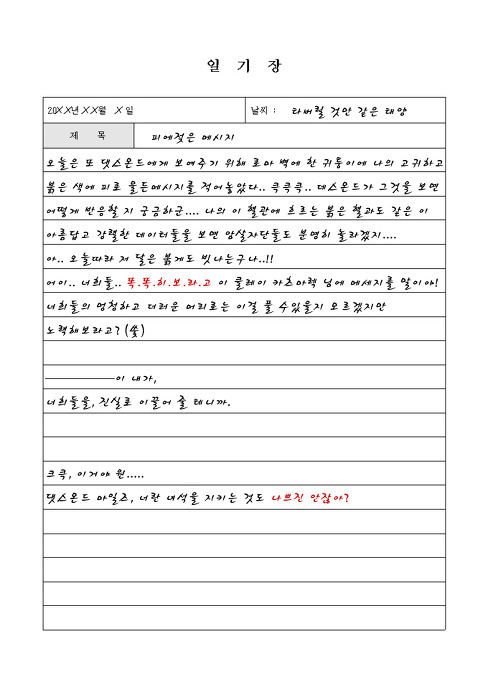 일 기 장
20XX년 XX월 X일
날씨 : 타버릴 것만 같은 태양
제 목
피에젖은 메시지
오늘은 또 댓스몬드에게 보여주기 위해 로마 벽에 한 귀퉁이에 나의 고귀하고
붉은 색에 피로 물든메시지를 적어놓았다.. 큭큭큭.. 데스몬드가 그것을 보면
어떻게 반응할 지 궁금하군.... 나의 이 혈관에 흐르는 붉은 혈과도 같은 이
아름답고 강렬한 데이터들을 보면 암살자단들도 분명히 놀라겠지....
아.. 오늘따라 저 달은 붉게도 빛나는구나..!!
어이.. 너희들.. 똑.똑.히.보.라.고 이 클레이 카츠마렉 님에 메세지를 말이야!
너희들의 멍청하고 더러운 머리로는 이걸 풀 수있을지 모르겠지만
노력해보라고?(웃)
──────이 내가,
너희들을, 진실로 이끌어 줄 테니까.
크큭, 이거야 원.....
댓스몬드 마일즈, 너란 녀석을 지키는 것도 나쁘진 안잖아?